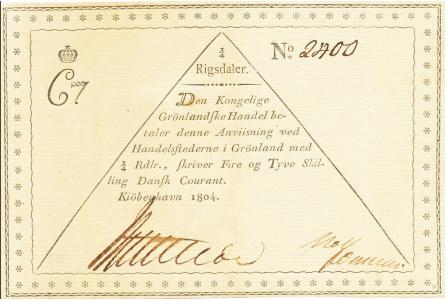 1/4
Rigsdaler.
No. 2400
C7
Den Kongelige
Grönlandske Handel be-
taler denne Anviisning ved
Handelsstederne i Grönland med
1/4 Rdlr., skriver Fire og Tyve Skil-
ling Dansk Courant.
Kiöbenhavn 1804.